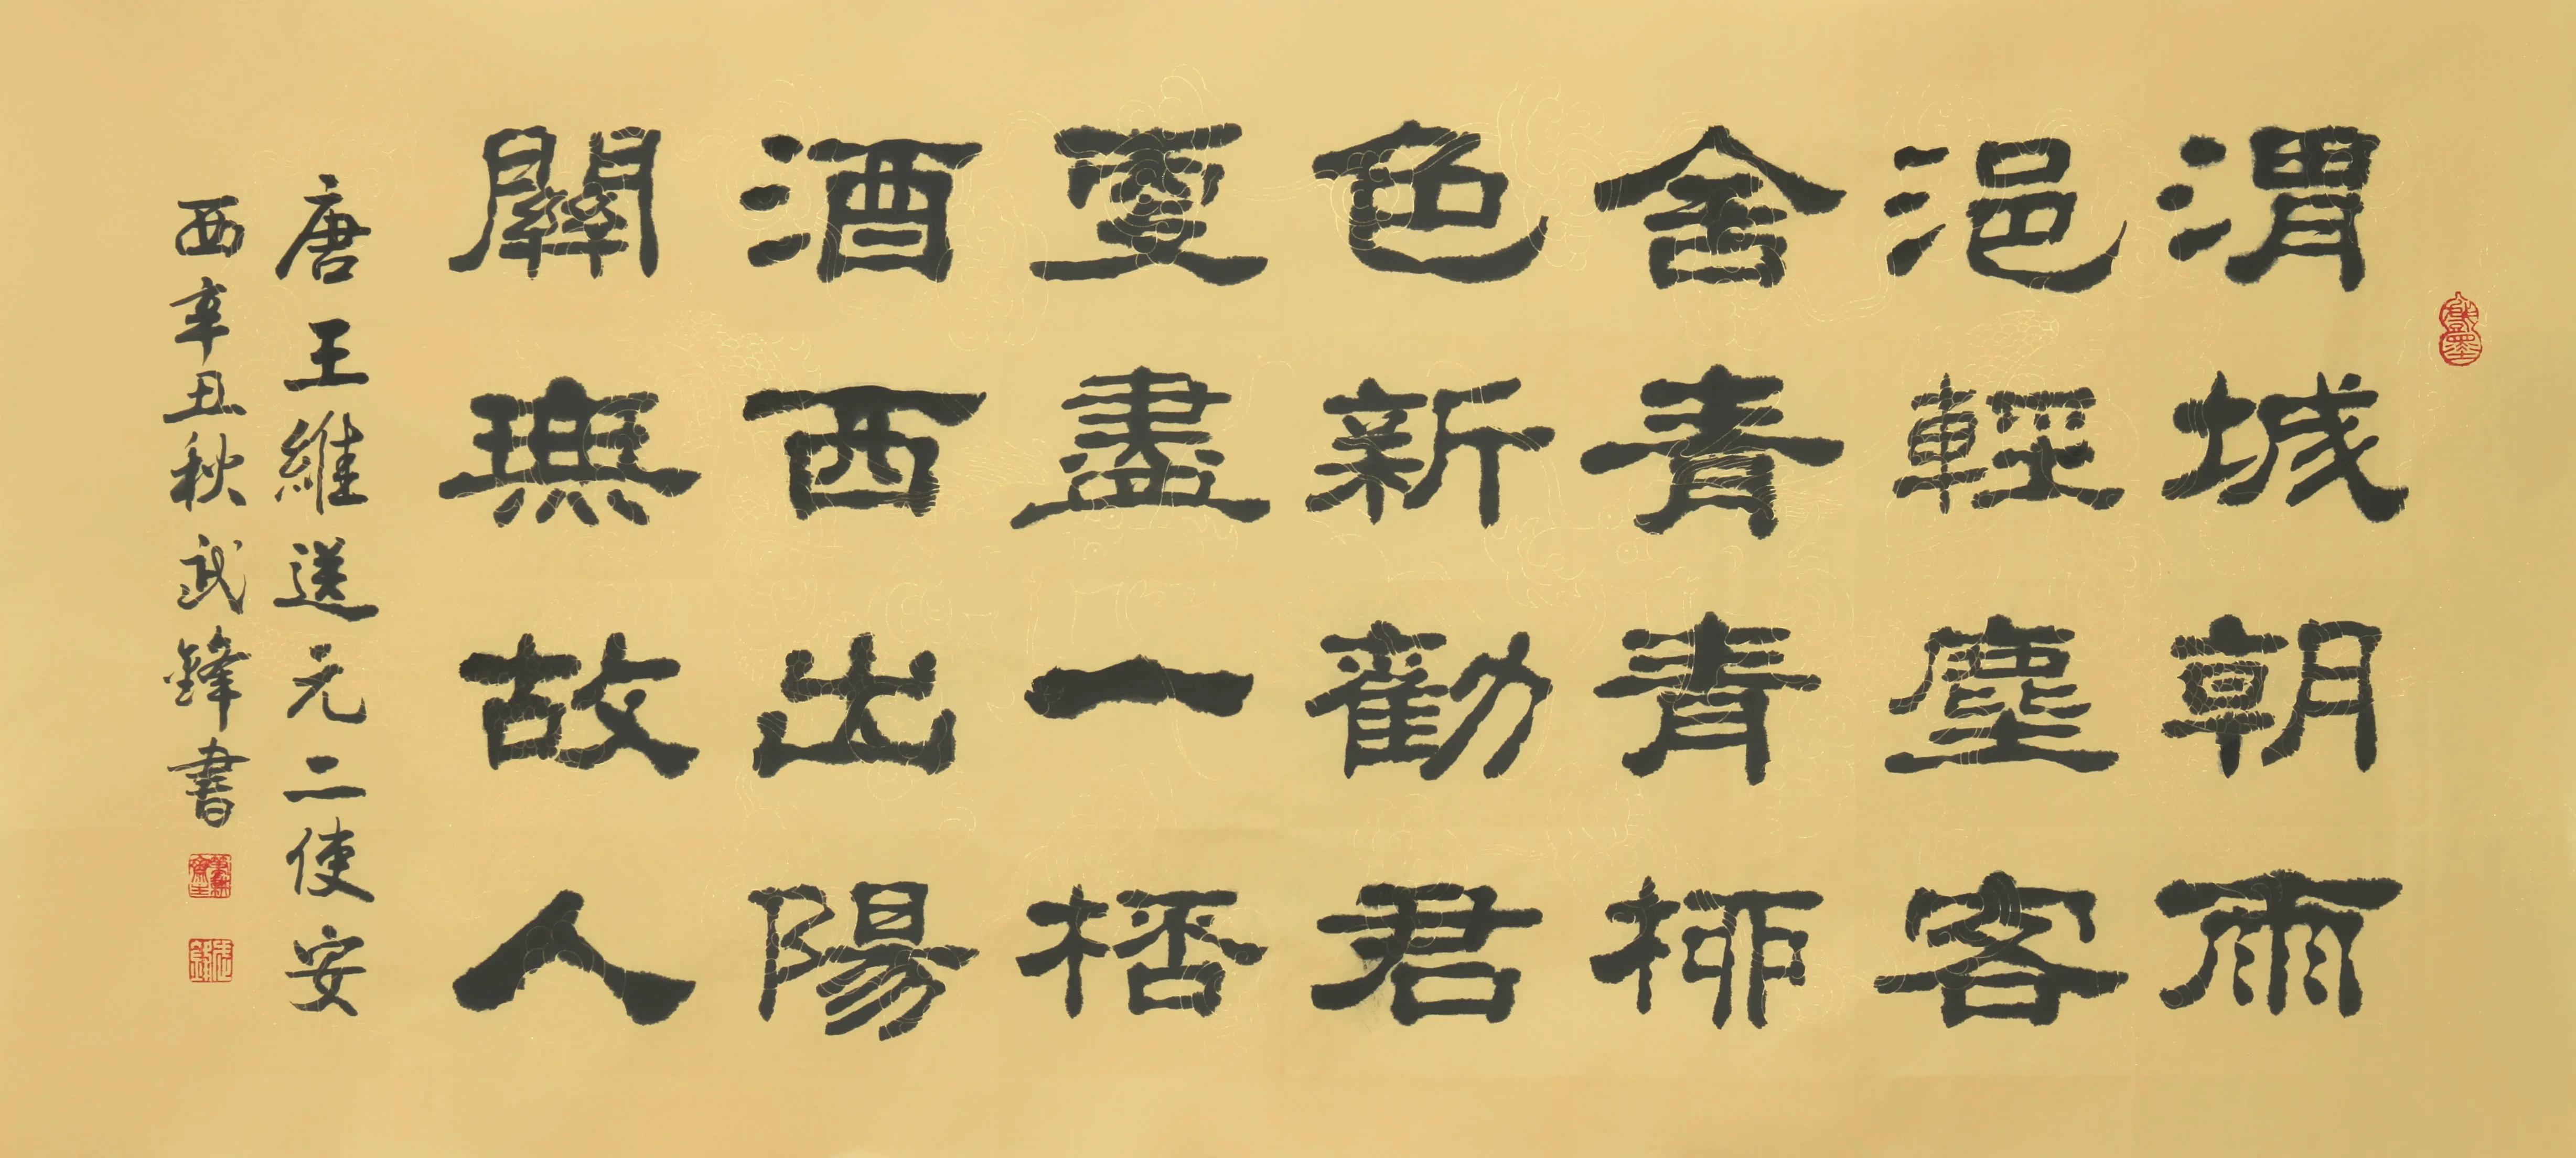 渭城朝雨
浥輕塵客
舍青青柳
色新勸君
更盡一桮
酒西出陽
關無故人
唐王維送元二使安
西辛丑秋武鋒書